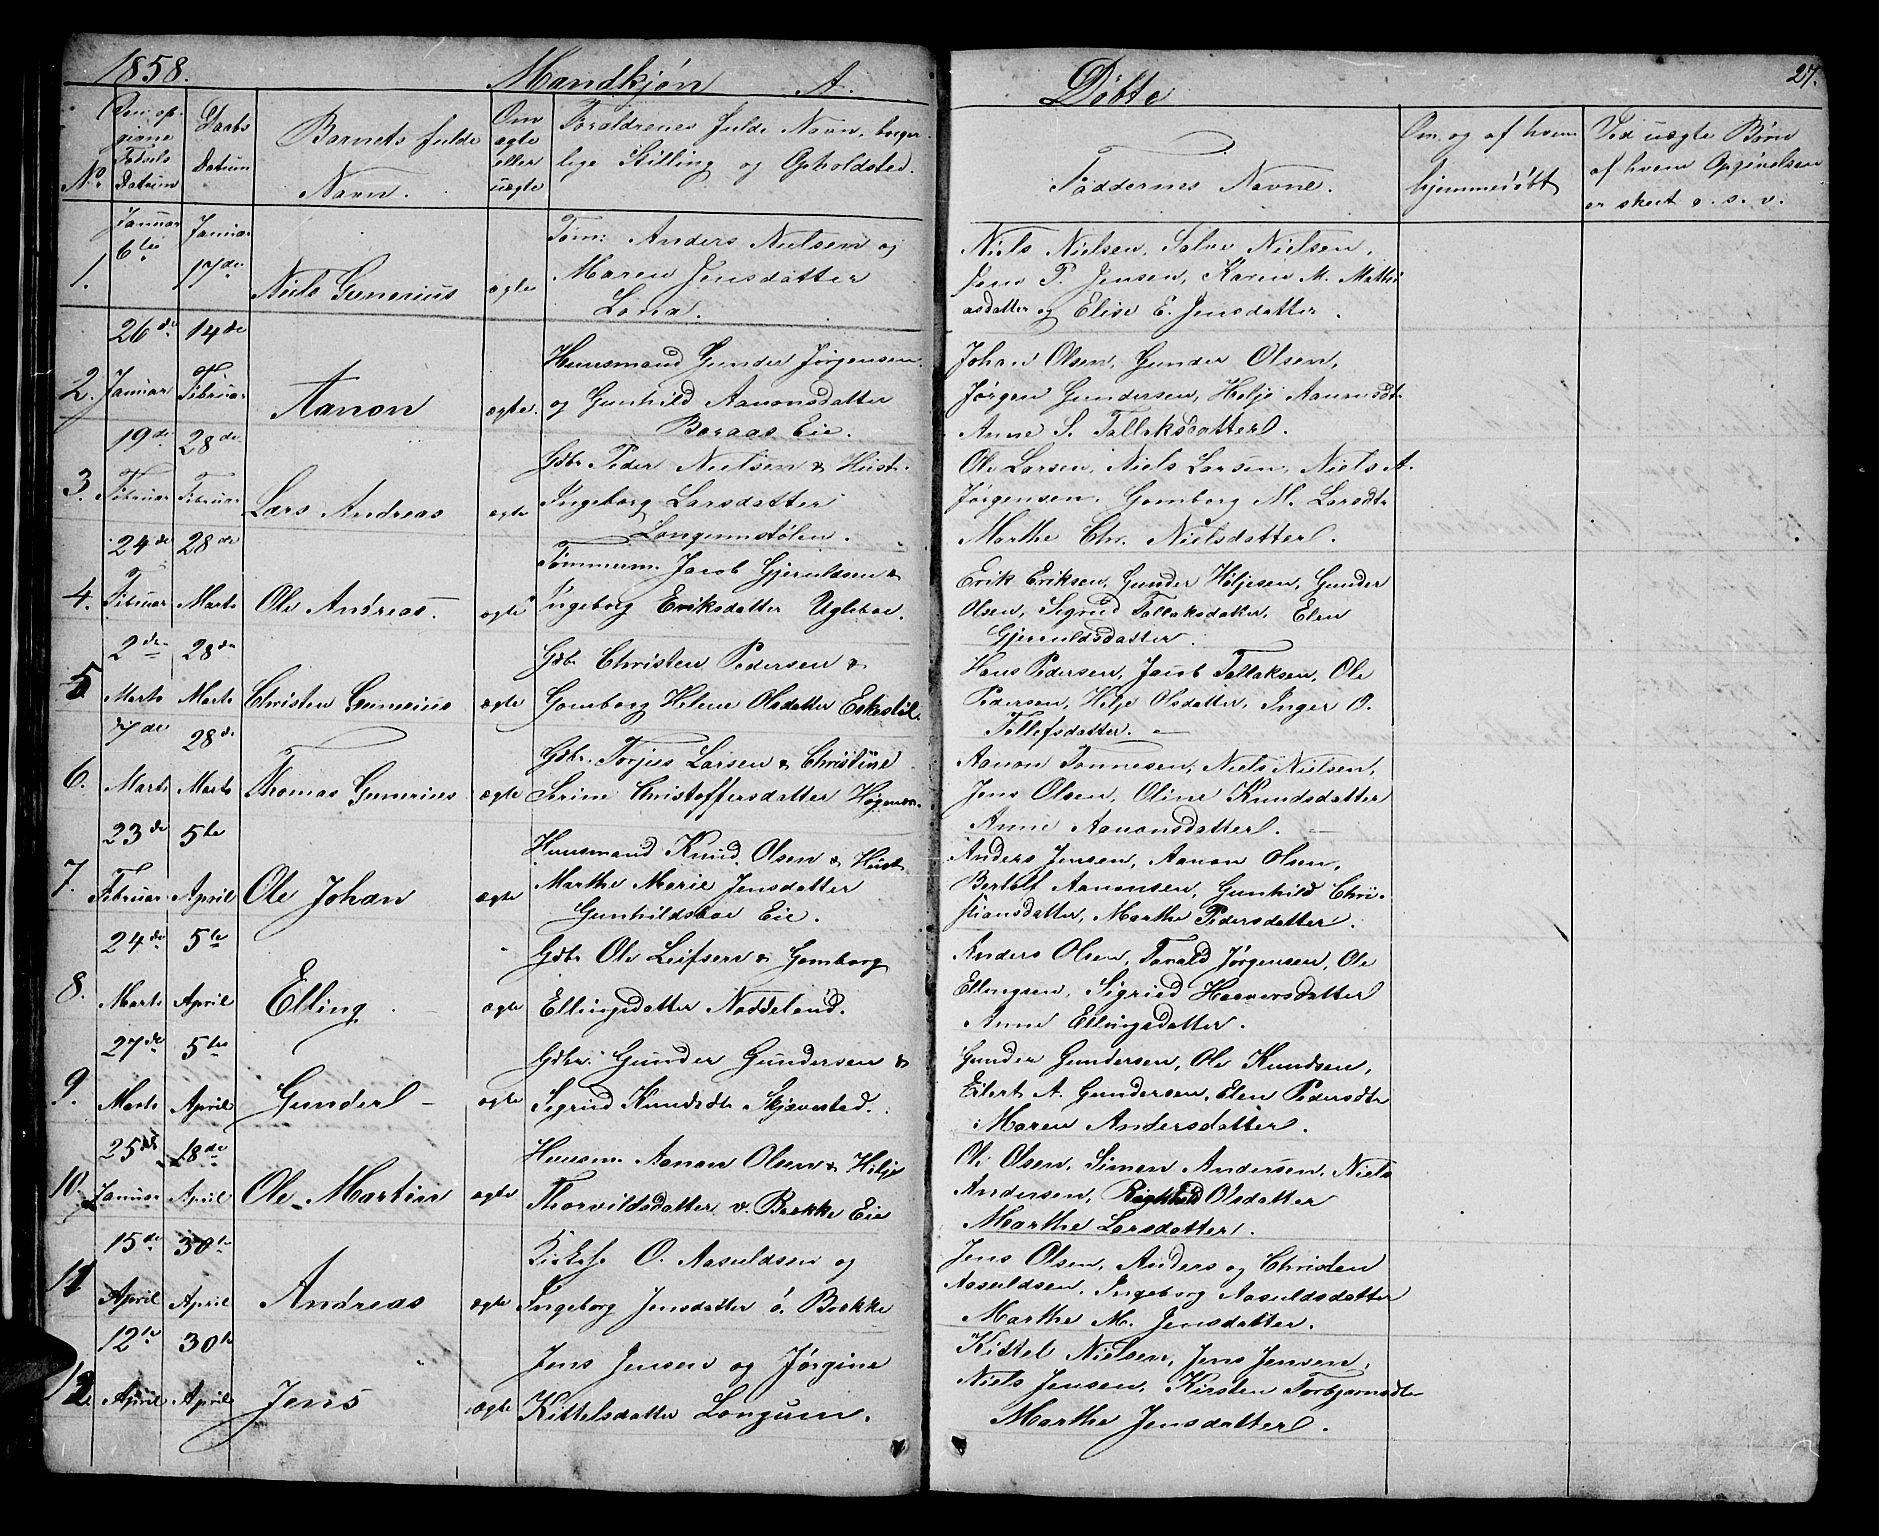 1858. Mandkjøn A. Døbte 27.
No. Den opgivne Fødsels Datum
Daabs Datum
Barnets fulde Navn.
Om ægte eller uægte
Forældrenes fulde Navn, borgerlige Stilling og Opholdsted.
Faddernes Navne.
Om og af hvem hjemmedøbt
Ved uægte Børn af hvem Opgivelsen er skeet o. s. v.
1. Januar 6te Januar 17de Niels Gunerius ægte
Tøm: Anders Nielsen og
Maren Jensdatter
Lona.
Niels Nielsen, Salve Nielsen,
Jens P. Jensen, Karen M. Mathi
asdatter og Elise E. Jensdatter.
2. 26de Januar 14de Februar Aanon ægte.
Huusmand Gunder Jørgensen
og Gunhild Aanonsdatter
Boraas Eie.
Johan Olsen, Gunder Olsen,
Jørgen Gundersen, Helje Aanonsdt.
Anne S. Tallaksdatter.
3. 19de Februar 28de Februar Lars Andreas ægte
Gdbr Peder Nielsen & Hust.
Ingeborg Larsdatter
Longumstølen.
Ole Larsen, Niels Larsen, Niels A.
Jørgensen, Gomborg M. Larsdtr
Marthe Chr. Nielsdatter.
4. 24de Februar 28de Marts Ole Andreas. ægte
Tømmerm. Jacob Gjeruldsen &
Ingeborg Eriksdatter Ugleboe.
Erik Eriksen, Gunder Høljesen, Gunder
Olsen, Sigrud Tallaksdatter, Elen
Gjeruldsdatter.
5 2den Marts 28de Marts Christen Gunerius ægte
Gdbr Christen Pedersen &
Gomborg Helene Olsdatter Eskestøl.
Hans Pedersen, Jacob Tallaksen, Ole
Pedersen, Helje Olsdatter, Inger O.
Tellefsdatter.
6. 7de Marts 28de Marts Thomas Gunerius ægte
Gdbr. Torjus Larsen & Christine
Serine Christoffersdatter
Aanon Tønnesen, Niels Nielsen,
Jens Olsen, Oline Knudsdatter
Anne Aanonsdatter.
7. 23de Februar 5te April Ole Johan ægte
Huusmand Knud Olsen & Hust.
Marthe Marie Jensdatter
Gunhildsboe Eie.
Anders Jensen, Aanon Olsen,
Bertolf Aanonsen, Gunhild Chri-
stiansdatter, Marthe Pedersdatter.
8. 24de Marts 5te April Elling ægte
Gdbr Ole Leifsen & Gomborg
Ellingsdatter Næddeland.
Anders Olsen, Tarald Jørgensen, Ole
Ellingsen, Sigried Haaversdatter
Anne Ellingsdatter.
9. 27de Marts 5te April Gunder ægte
Gdbr. Gunder Gundersen &
Sigrud Knudsdtr Skjævested.
Gunder Gundersen, Ole Knudsen,
Eilert A. Gundersen, Elen Pedersdtr
Maren Andersdatter.
10. 25de Januar 18de April Ole Martin ægte
Huusm. Aanon Olsen & Helje
Thorvildsdatter v. Bække Eie
Ole Olsen, Simon Andersen, Niels
Andersen, Olsdatter
Marthe Larsdatter.
11 15de April 30te April Andreas ægte
O. Aasuldsen og
Ingeborg Jensdatter ø. Bække
Jens Olsen, Anders og Christen
Aasuldsen, Ingeborg Aasuldsdatter
Marthe M. Jensdatter.
12. 12te April 30te April Jens ægte
Jens Jensen og Jørgine
Kittelsdatter Longum.
Kittel Nielsen, Jens Jensen,
Niels Jensen, Kirsten Torbjørnsdtr
Marthe Jensdatter.